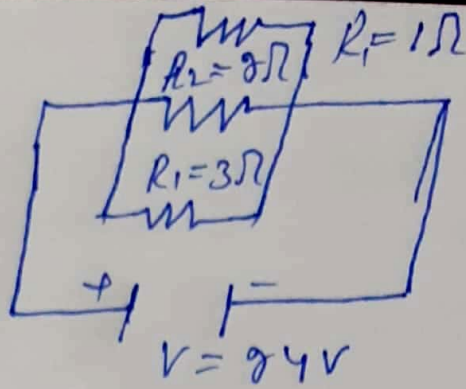 R₁=1Ω
R₂=2Ω
R₁=3Ω
+ -
V=24V